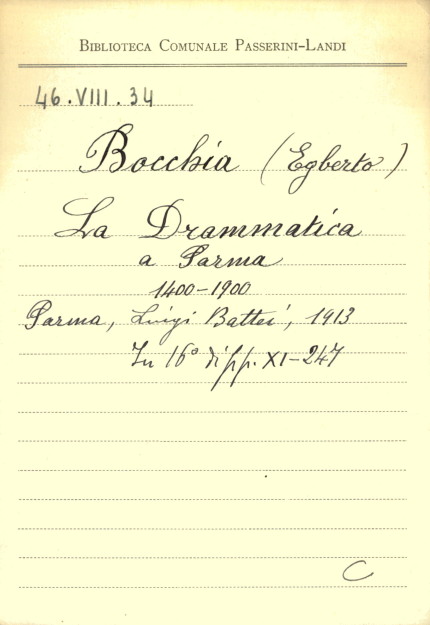 BIBLIOTECA COMUNALE PASSERINI-LANDI
46.VIII.34
Bocchia (Egberto)
La Drammatica
a Parma
1400-1900
Parma, Luigi Battei, 1913
In 16° di pp. XI-247
C